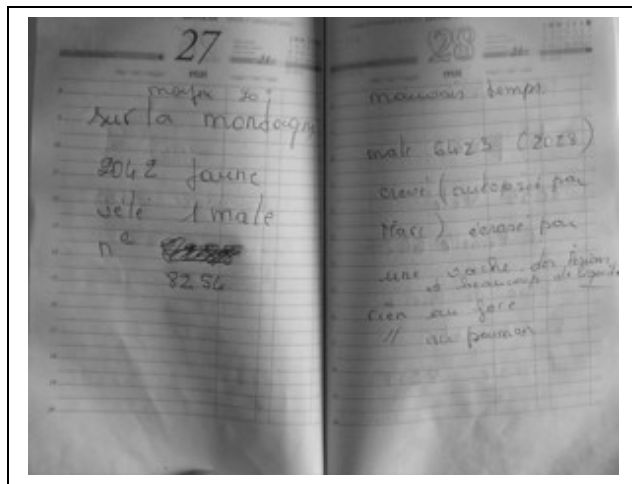 27
mai
sur la montagne
2042 jaune
vélé 1 male
n°
8254
28
mai
mauvais temps
male 6423 (2028)
crevé (autopsié par
Marc) écrasé par
une vache
et beaucoup de liquide
rien au foie
// au poumon